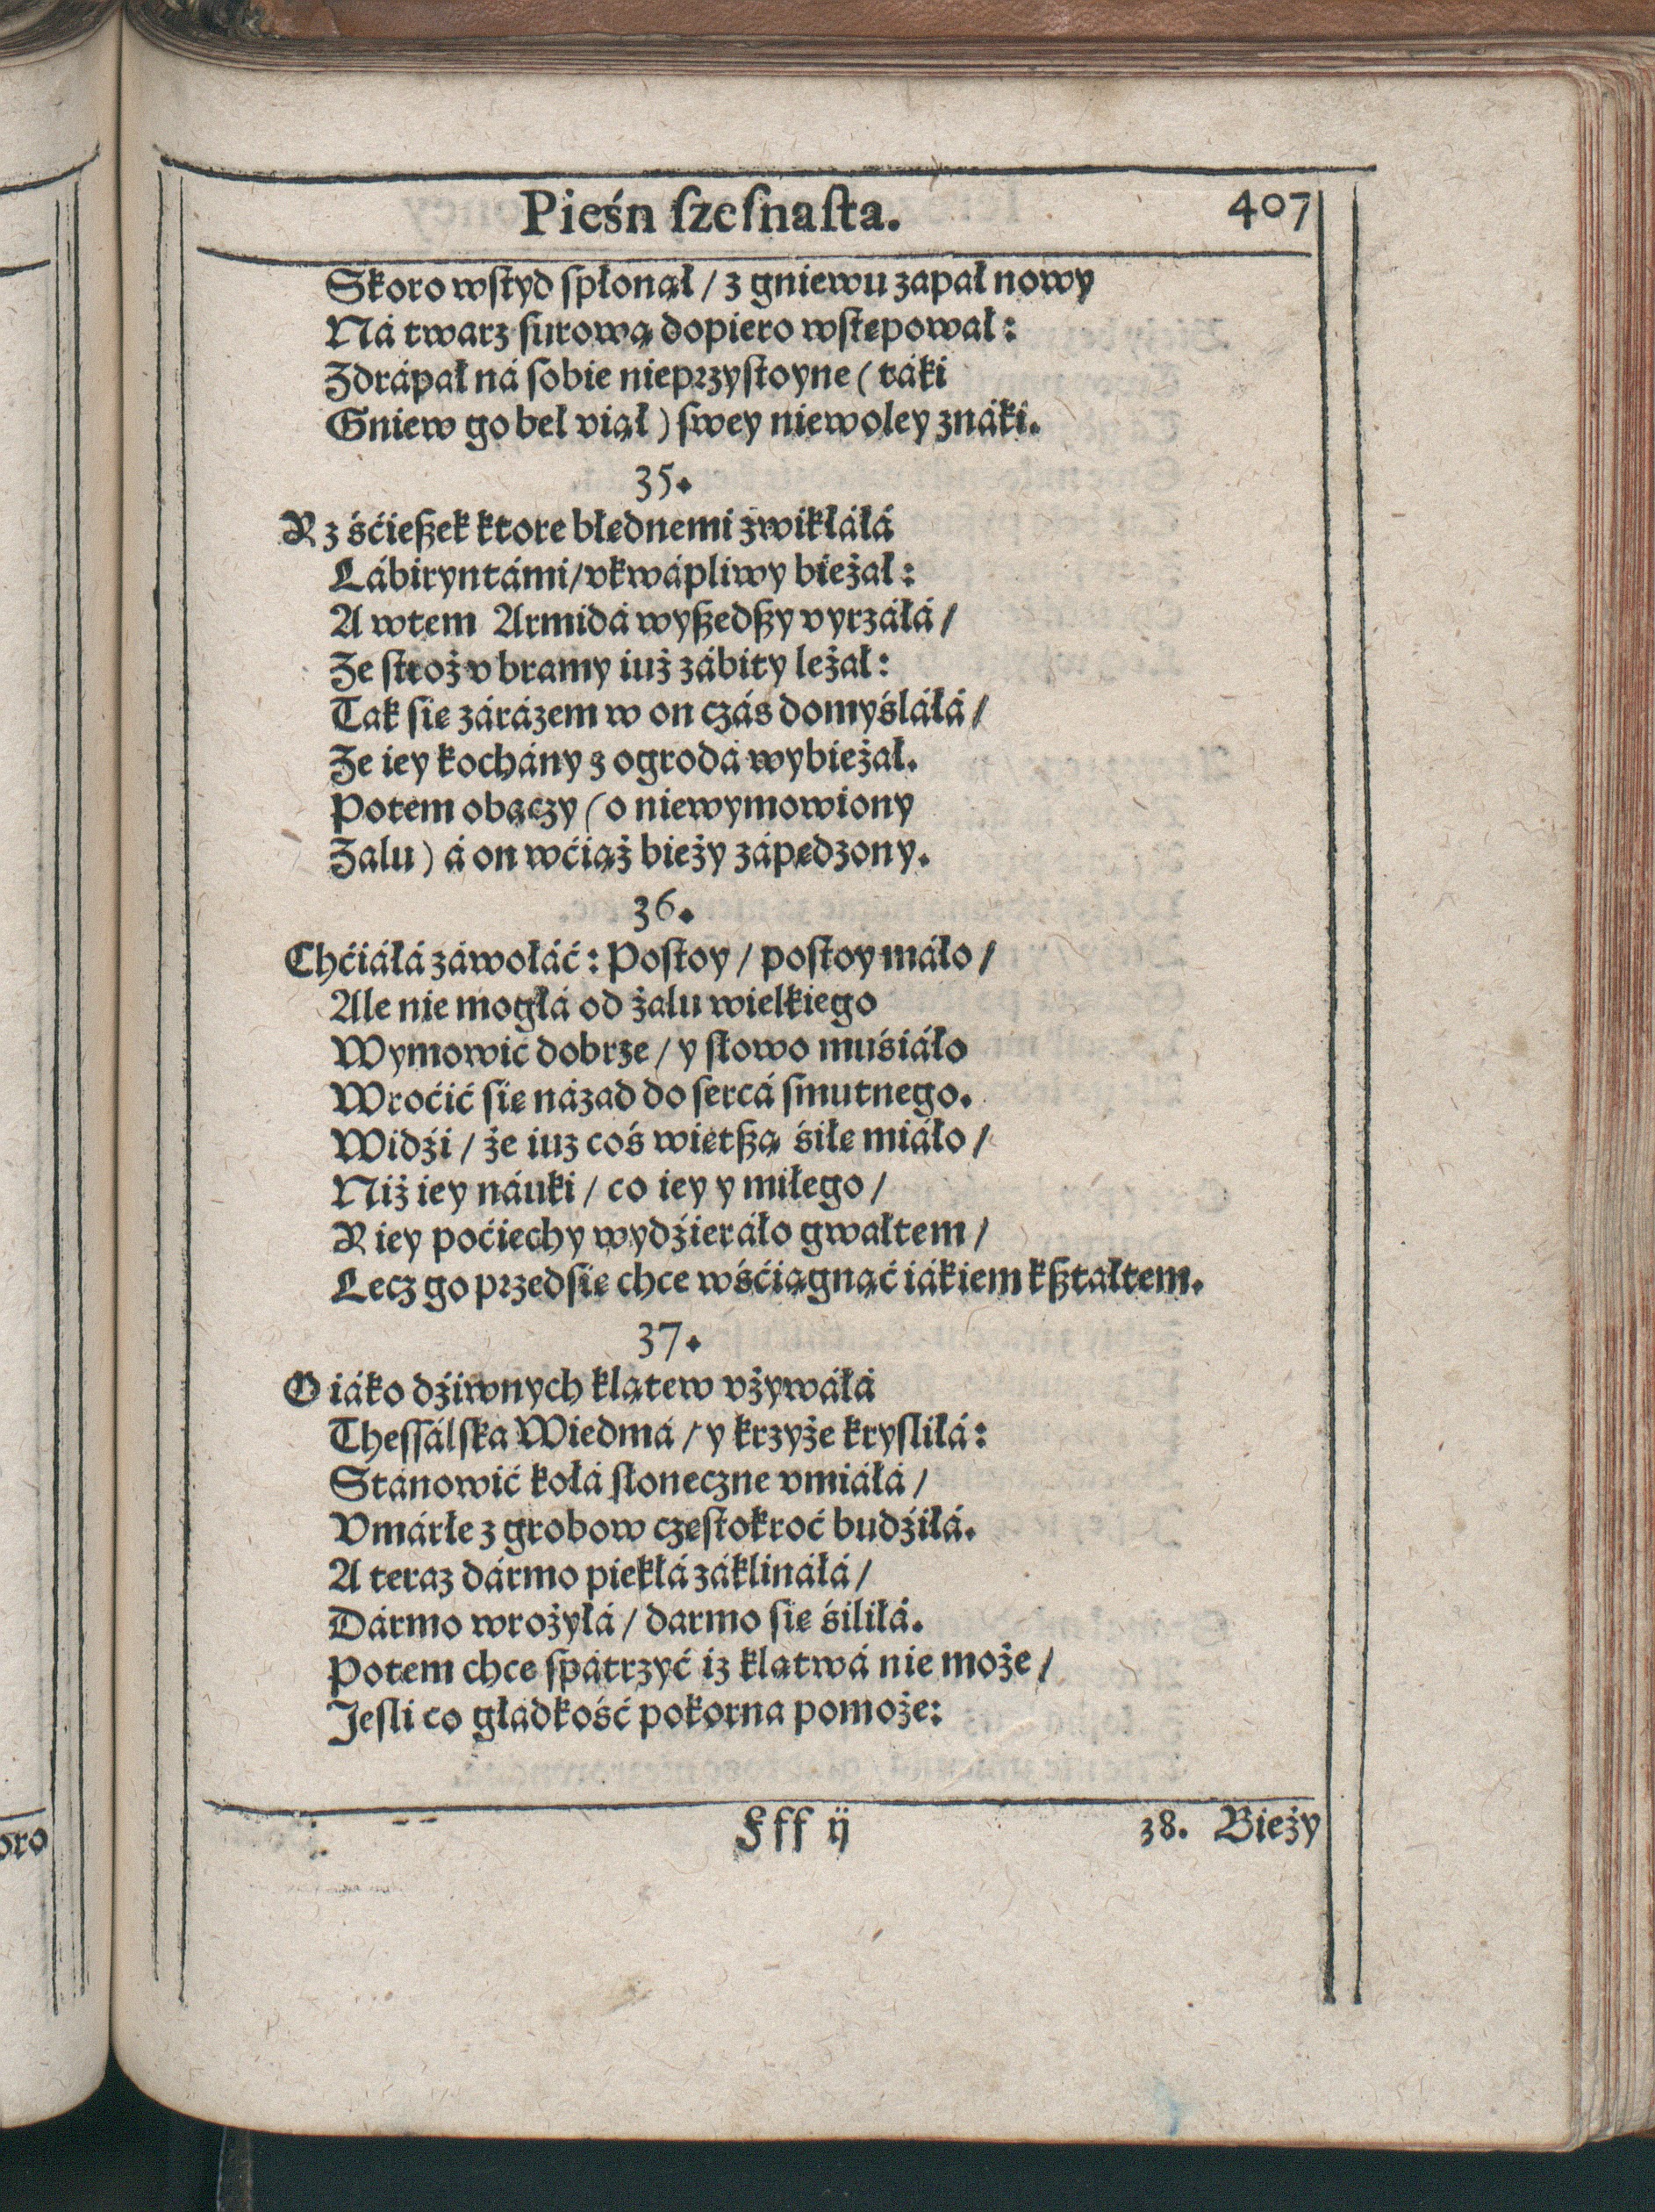 Pieśń ſzeſnaſta. 407
Skoro wſtyd ſpłonął / z gniewu zapał nowy
Ná twarz ſurową dopiero wſtępował:
Zdrápał ná ſobie nieprzyſtoyne (táki
Gniew go beł viął) ſwey niewoley znáki.
35.
Y z śćieſzek ktore błędnemi zwikłáłá
Lábiryntámi / vkwápliwy bieżał:
A wtem Armidá wyſzedſzy vyrzáłá /
Ze ſtroż v bramy iuż zábity leżał:
Tak ſię zárázem w on czás domyśláłá /
Ze iey kochány z ogrodá wybieżał.
Potem obaczy (o niewymowiony
Zalu) á on wćiąż bieży zápędzony.
36.
Chćiáłá záwołáć: Poſtoy / poſtoy máło /
Ale nie mogłá od żalu wielkiego
Wymowić dobrze / y ſłowo muśiáło
Wroćić ſię názad do ſercá ſmutnego.
Widźi / że iuz coś więtſzą śiłę miáło /
Niż iey náuki / co iey y miłego /
Y iey poćiechy wydźieráło gwałtem /
Lecz go przedſię chce wśćiągnąć iákiem kſztałtem.
37.
O iáko dźiwnych klątew vżywáłá
Theſſálſka Wiedmá / y krzyże kryſliłá:
Stánowić kołá ſłoneczne vmiáłá /
Vmárłe z grobow częſtokroć budźiłá.
A teraz dármo piekłá záklináłá /
Dármo wrożyłá / darmo ſię śiliłá.
Potem chce ſpátrzyć iz klątwá nie może /
Jeſli co głádkość pokorna pomoże:
Fff ij 38. Bieży
oro